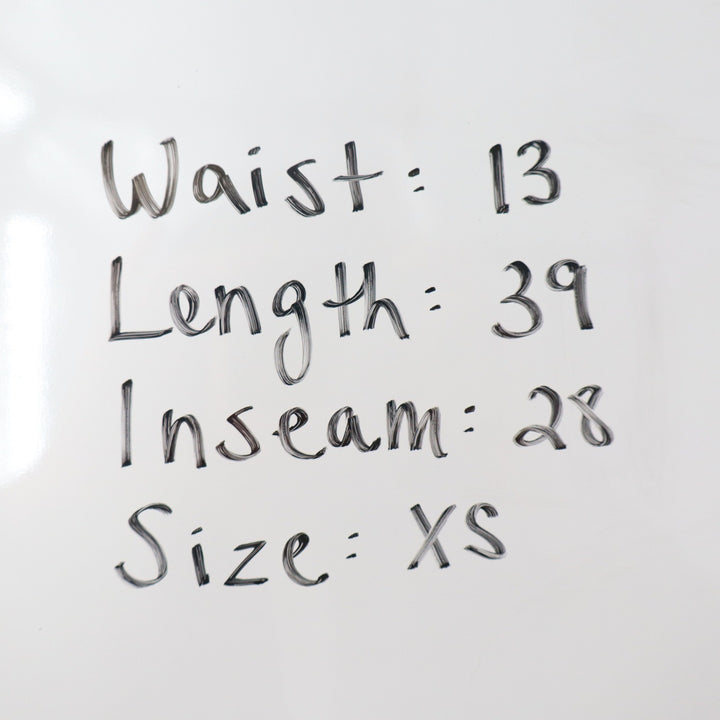 Waist: 13
Length: 39
Inseam: 28
Size: XS